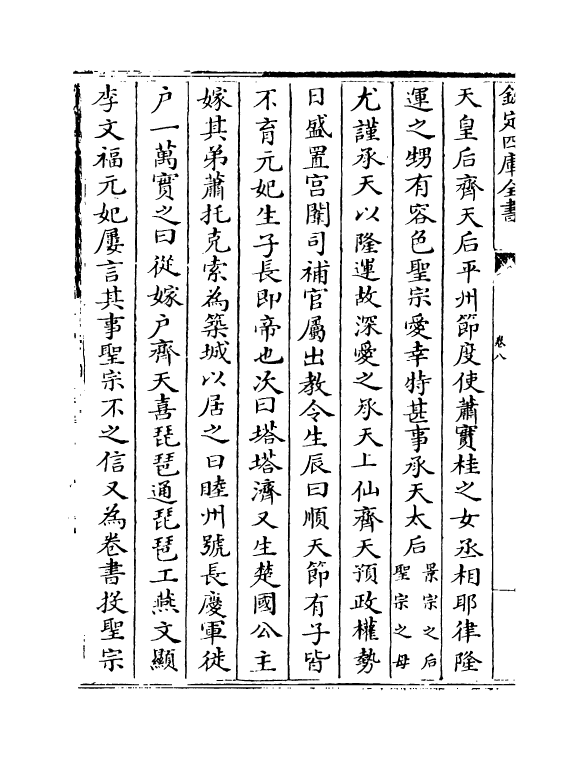 欽定四庫全書
卷八
天皇后齊天后平州節度使蕭寶桂之女丞相耶律隆
運之甥有容色聖宗愛幸特甚事承天太后景宗之后聖宗之母
尤謹承天以隆運故深愛之承天上仙齊天預政權勢
日盛置宫闈司補官屬出教令生辰曰順天節有子皆
不育元妃生子長即帝也次曰塔塔濟又生楚國公主
嫁其弟蕭托克索為築城以居之曰睦州號長慶軍徙
户一萬實之曰從嫁户齊天喜琵琶通琵琶工燕文顯
李文福元妃屢言其事聖宗不之信又為卷書投聖宗